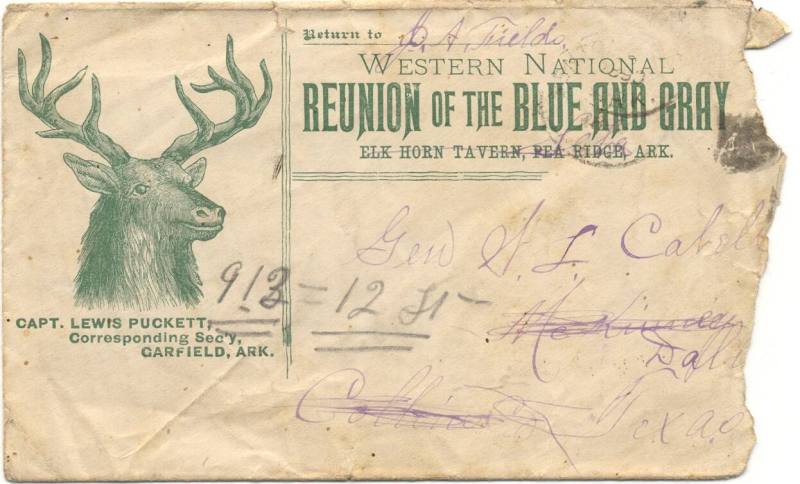 Return to J. A. Fields,
WESTERN NATIONAL
REUNION OF THE BLUE AND GRAY
ELK HORN TAVERN, PEA RIDGE, ARK.
Gen W. L. Cabel
McKinney
Dall
Collins Co Texas
913 = 12 St
CAPT. LEWIS PUCKETT,
Corresponding Sec'y,
GARFIELD, ARK.